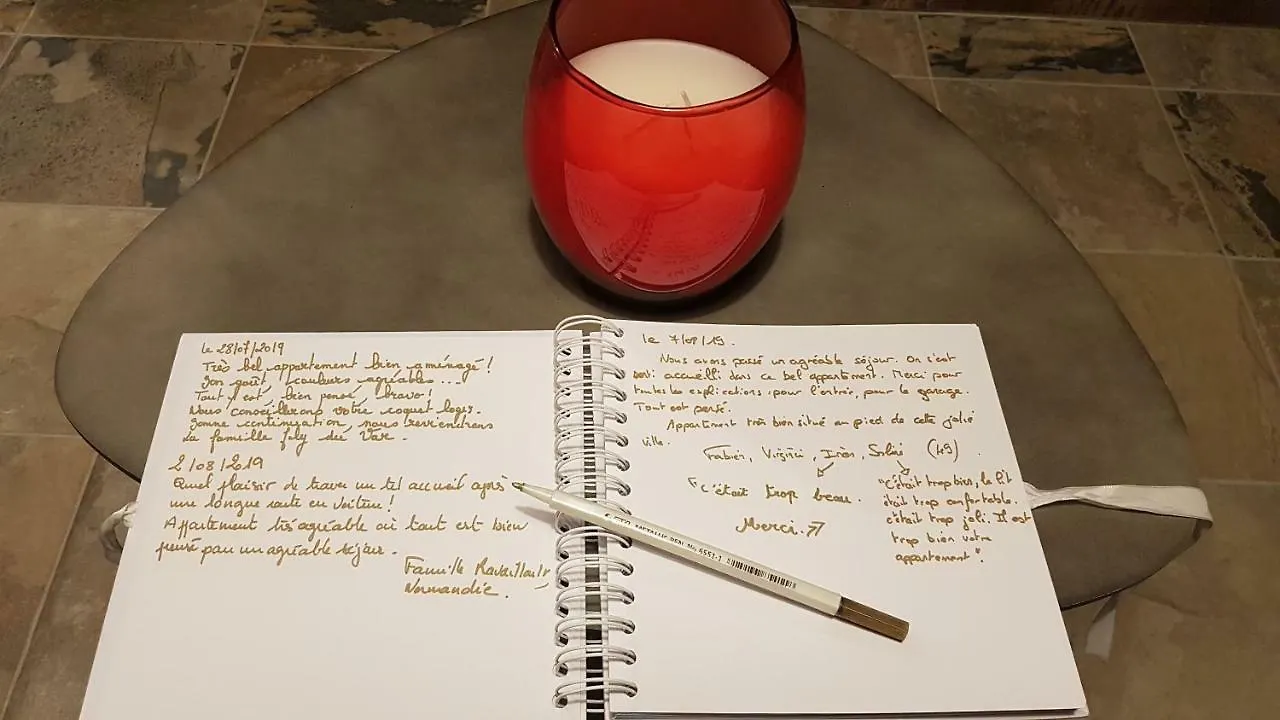 Le 28/07/2019
Très bel appartement bien aménagé !
Bon goût, couleurs agréables ...
Tout y est, bien pensé, bravo !
Nous conseillerons votre coquet logis.
Bonne continuation, nous reviendrons
La famille du Var.
2/08/2019
Quel plaisir de trouver un tel accueil après
une longue route en voiture !
Appartement très agréable où tout est bien
pensé pour un agréable séjour.
Famille
Normandie.
le 7/08/19.
Nous avons passé un agréable séjour. On s'est
senti accueilli dans ce bel appartement. Merci pour
toutes les explications pour l'entrée, pour le garage.
Tout est pensé.
Appartement très bien situé au pied de cette jolie
ville.
Fabien, Virginie, Inès, (49)
"c'était trop beau.
Merci.
"C'était trop bien, le lit
était trop confortable.
c'était trop joli. Il est
trop bien votre
appartement".
METALLIC PEN, No. 6551-1